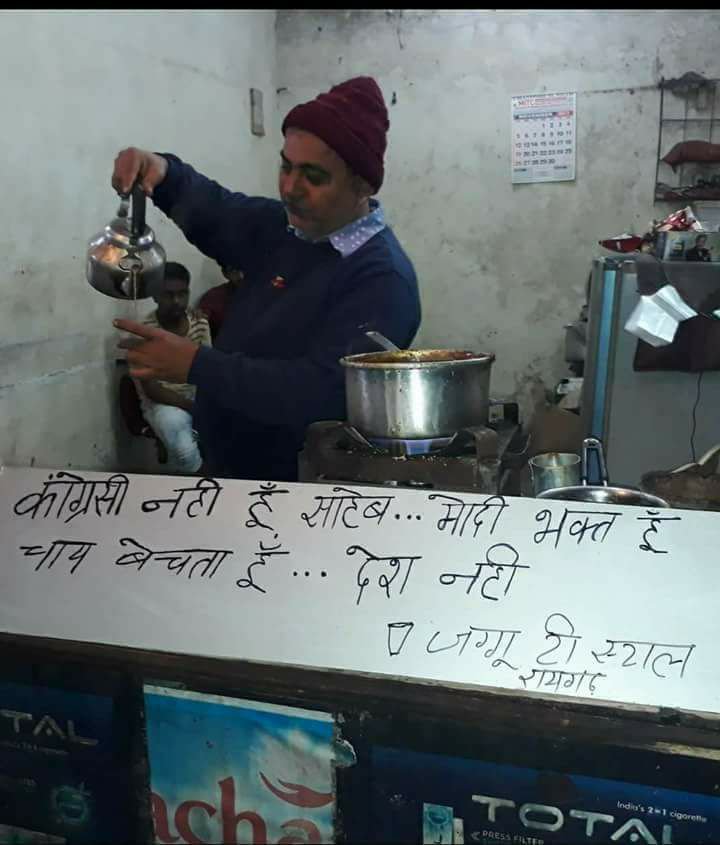 कांग्रेसी नही हूँ साहेब... मोदी भक्त हूँ
चाय बेचता हूँ... देश नही
जग्गू टी स्टाल
रायगढ़
TAL
acha
TOTAL
India's 2 in 1 cigarette
< PRESS FILTER